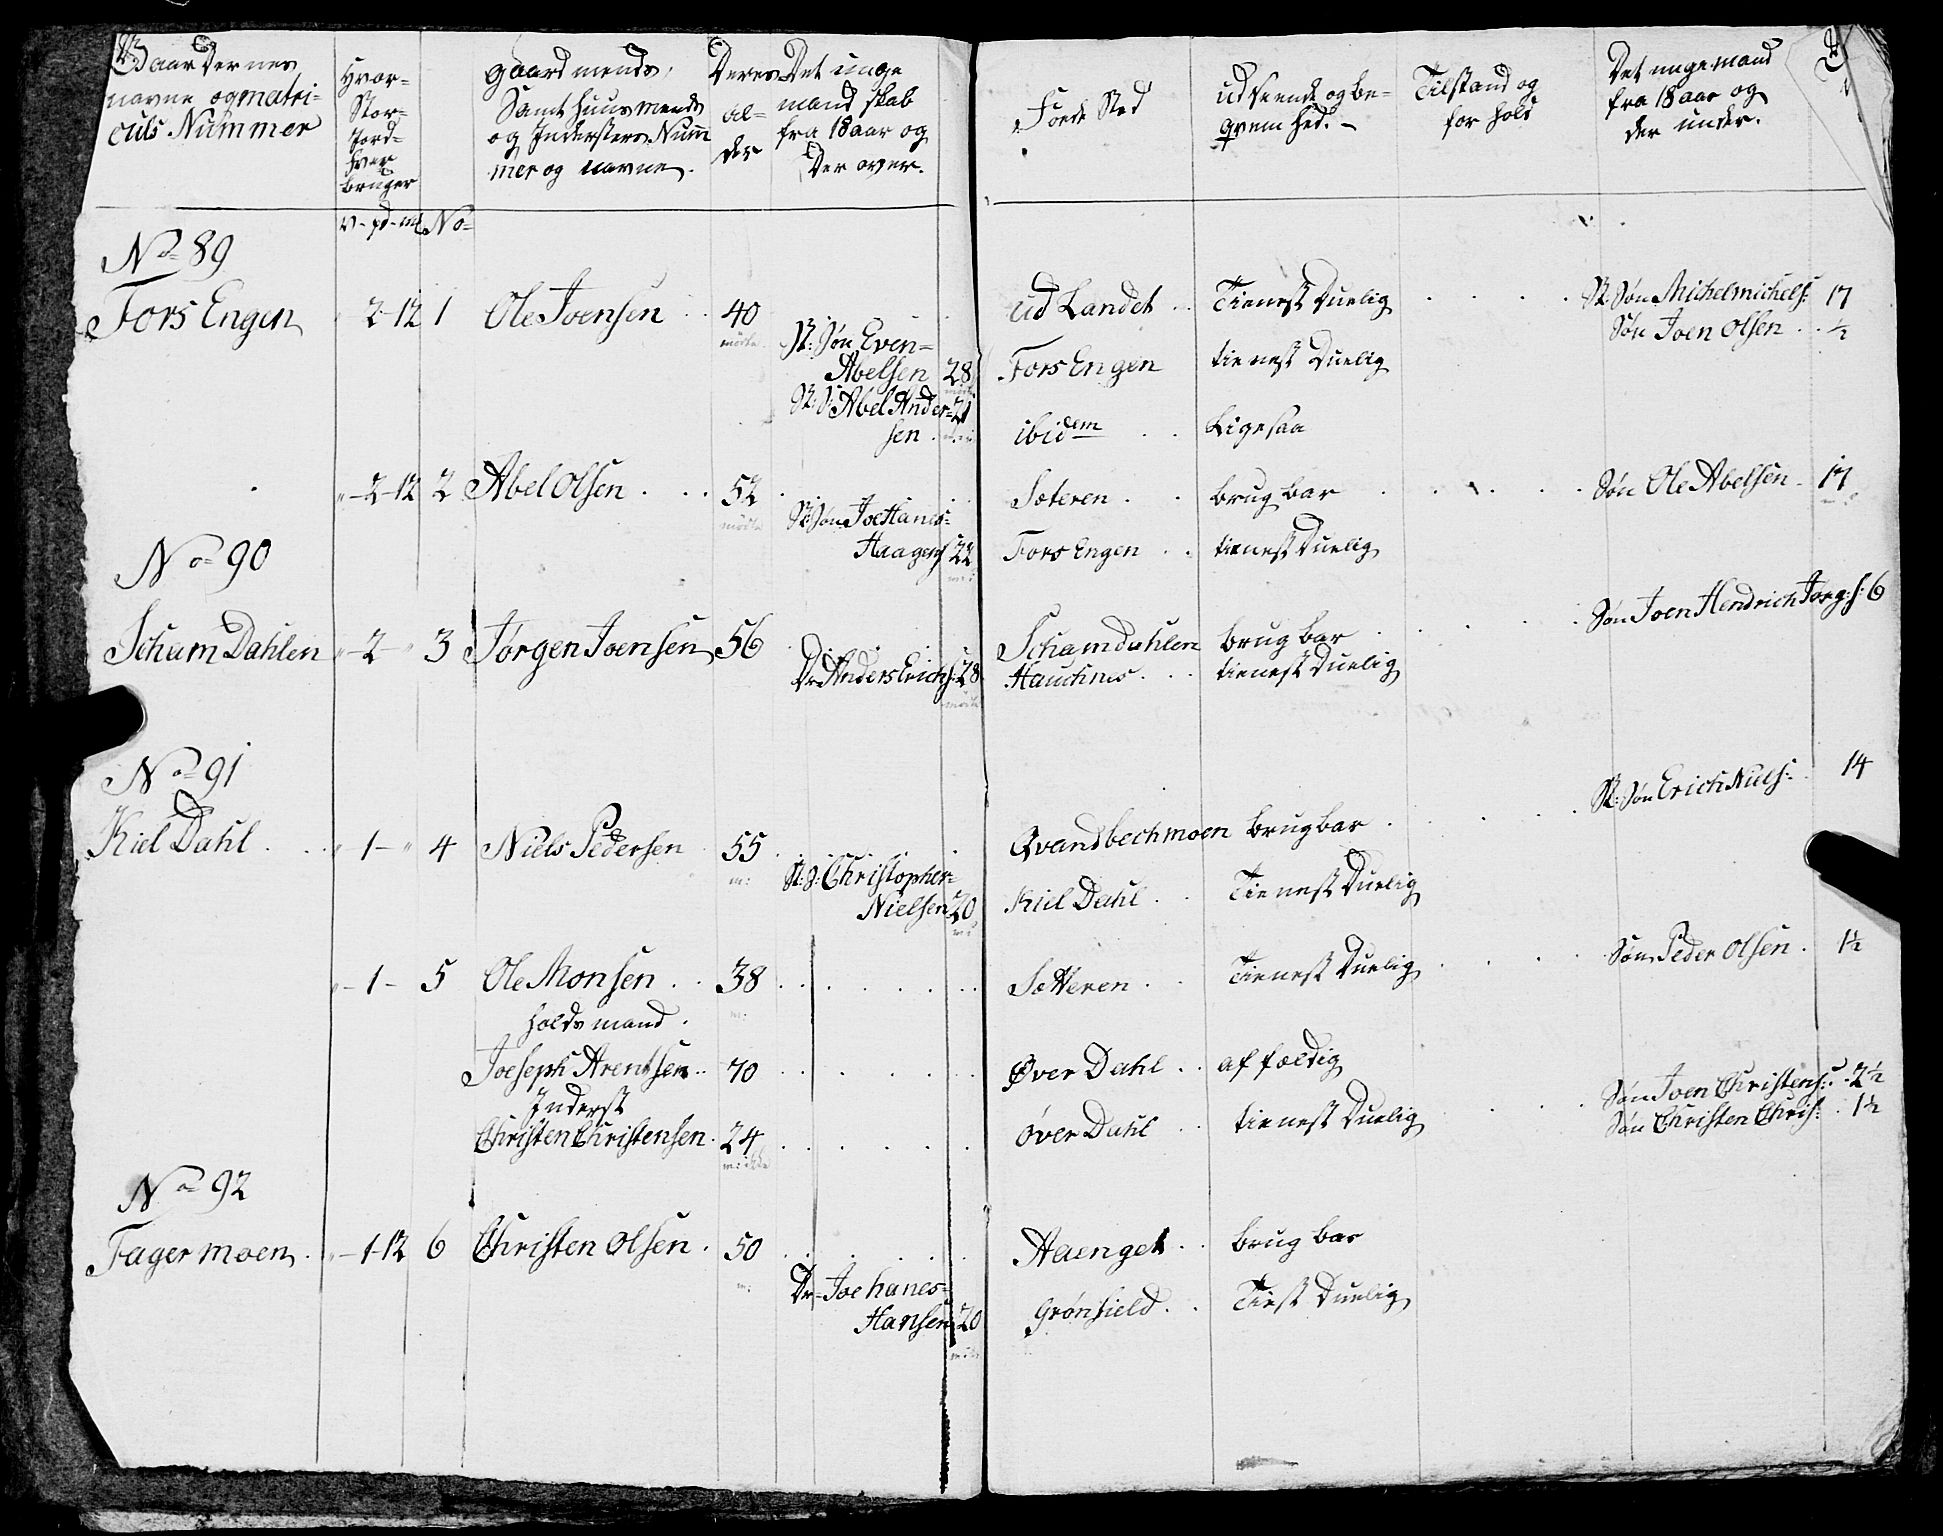 Gaardernes
navne og matri=
culs Nummer
Hvor=
Stor=
Jord=
hver
bruger
gaardmends,
Samt huusmends
og Indersters Num
mer og navne.
Deres
al=
der
Det unge
mand skab
fra 18 aar og
Der over.
Føde Sted
udseende og be=
qvem hed. -
Tilstand og
for hold
Det unge mand
fra 18 aar og
der under.
v - pd - mk No=
No= 89
Fors Engen 2-12 1 Ole Joensen .. 40
møtte
St: Søn Even=
Abelsen 28
St: S: Abel Ander= 21
sen .
ud Landet .. Tienest Duelig .... St: Søn Michel michels: 17
Søn Joen Olsen .. ½
Fors Engen tienest Duelig
ibidem .. Ligesaa
"-2-12 2 Abel Olsen ... 52
møtte
St: Søn Johanes=
Haagens 22
Sæteren .. brugbar ..... Søn Ole Abelsen - 17
Fors Engen .. tienest Duelig
No= 90
Scham Dahlen "-2-" 3 Jørgen Joensen 56
Dr. Anders Erichs: 28
møtte
Schamdahlen brugbar .... Søn Joen Hendrich Jørg:s: 6
Hauchnes ... tienest Duelig
No= 91
Kiel Dahl .. " 1-" 4 Niels Pedersen 55
m:
St: S: Christopher=
Nielsen 20
m:
Qvandbechmoen brugbar ..... St: Søn Erich Niels: . 14
Kiel Dahl .. Tienest Duelig
"-1- 5 Ole Monsen .. 38 .......
m:
Sætteren .. Tienest Duelig .... Søn Peder Olsen . 1½
holds mand .
Joeseph Arentsen .. 70 ......
Øver Dahl .. affældig
Inderst
Christen Christensen . 24 ......
m: ikke
øver Dahl .. tienest Duelig ... Søn Joen Christens: . 2½
Søn Christen Chris: . 1½
No= 92
Fager moen . "-1-12 6 Christen Olsen . 50 .....
m:
Dr- Joehanes=
Hansen 20
Haenget .. brugbar
Grønfield .. Tiest Duelig